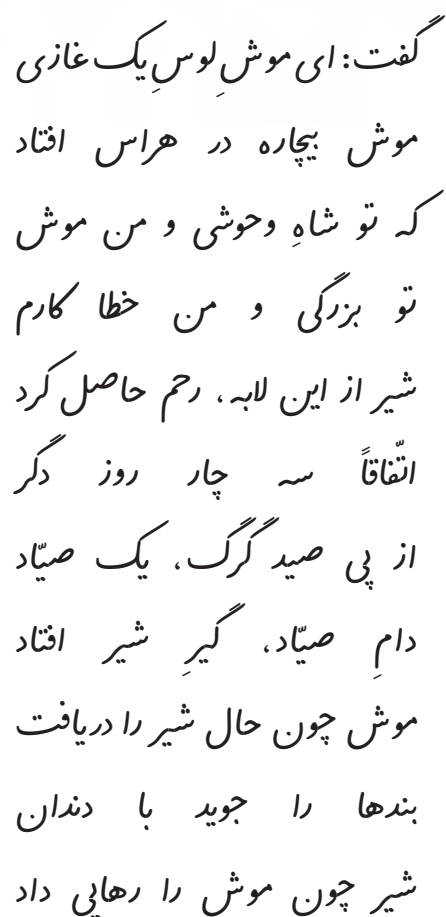 گفت: ای موشِ لوسِ یک غازی
موش بیچاره در هراس افتاد
که تو شاهِ وحوشی و من موش
تو بزرگی و من خطا کارم
شیر از این لابه، رحم حاصل کرد
اتّفاقاً سه چار روز دگر
از پی صید گرگ، یک صیّاد
دامِ صیّاد، گیرِ شیر افتاد
موش چون حال شیر را دریافت
بندها را جوید با دندان
شیر چون موش را رهایی داد